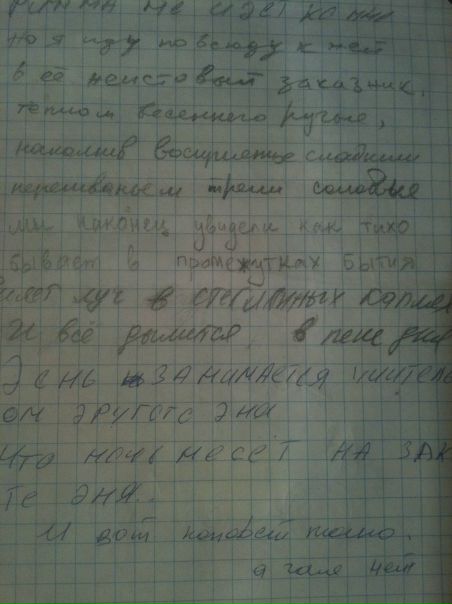 не идёт ко мне
но я иду повсюду к ней
в её неистовый заказник,
теплом весеннего ручья,
наполнив восприятие слабким
переливаньем трели соловья
мы наконец увидели как тихо
бывает в промежутках бытия
луч в стеклянных каплях
И всё дымится, в пене дня
Э ень занимается учитель
ом эругого эна
Что ночь несёт на зак
те эня..
И вот
а гале нет